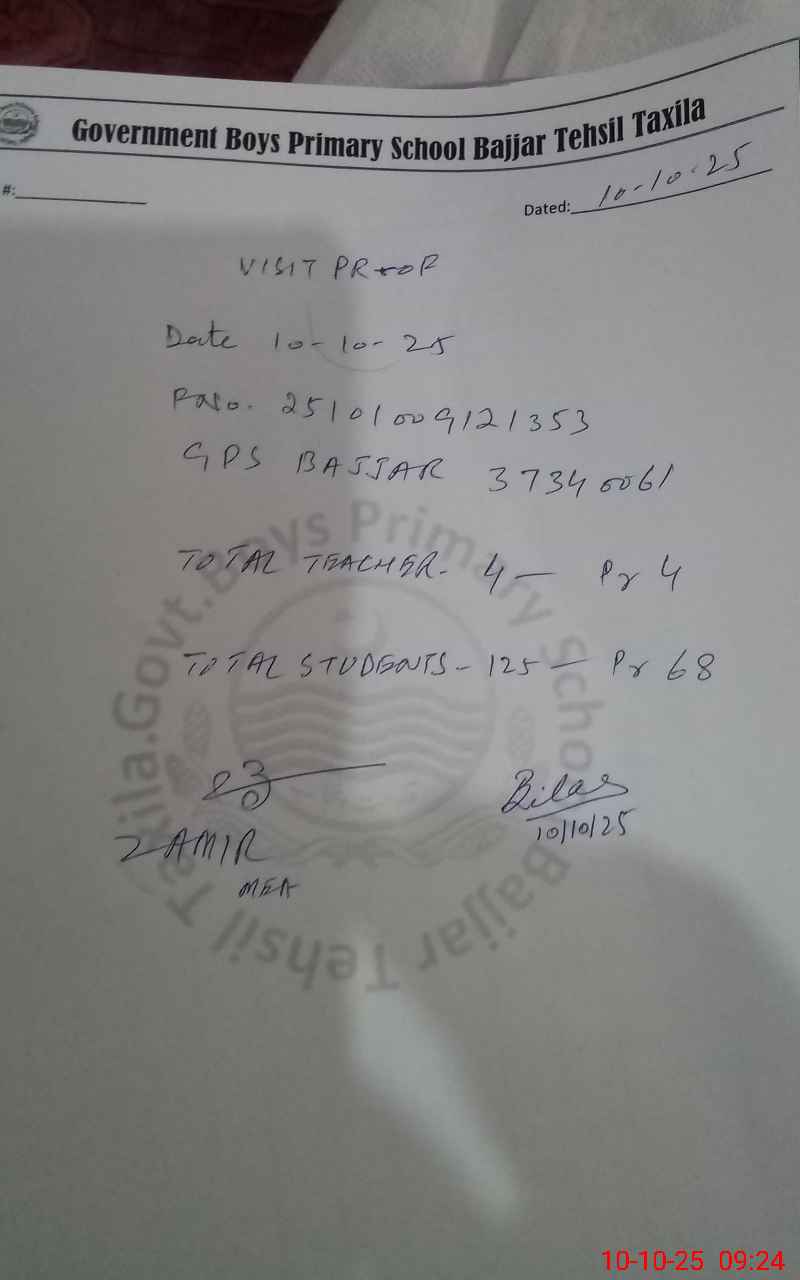 Government Boys Primary School Bajjar Tehsil Taxila
#:
Dated: 10-10-25
VISIT PROOF
Date 10-10-25
25101009121353
GPS BAJJAR 37340061
TOTAL TEACHER- 4 — Pr 4
TOTAL STUDENTS - 125 — Pr 68
Bilal
10/10/25
ZAMIR
MEA
Govt. Boys Primary School Bajjar Tehsil Taxila.
10-10-25 09:24